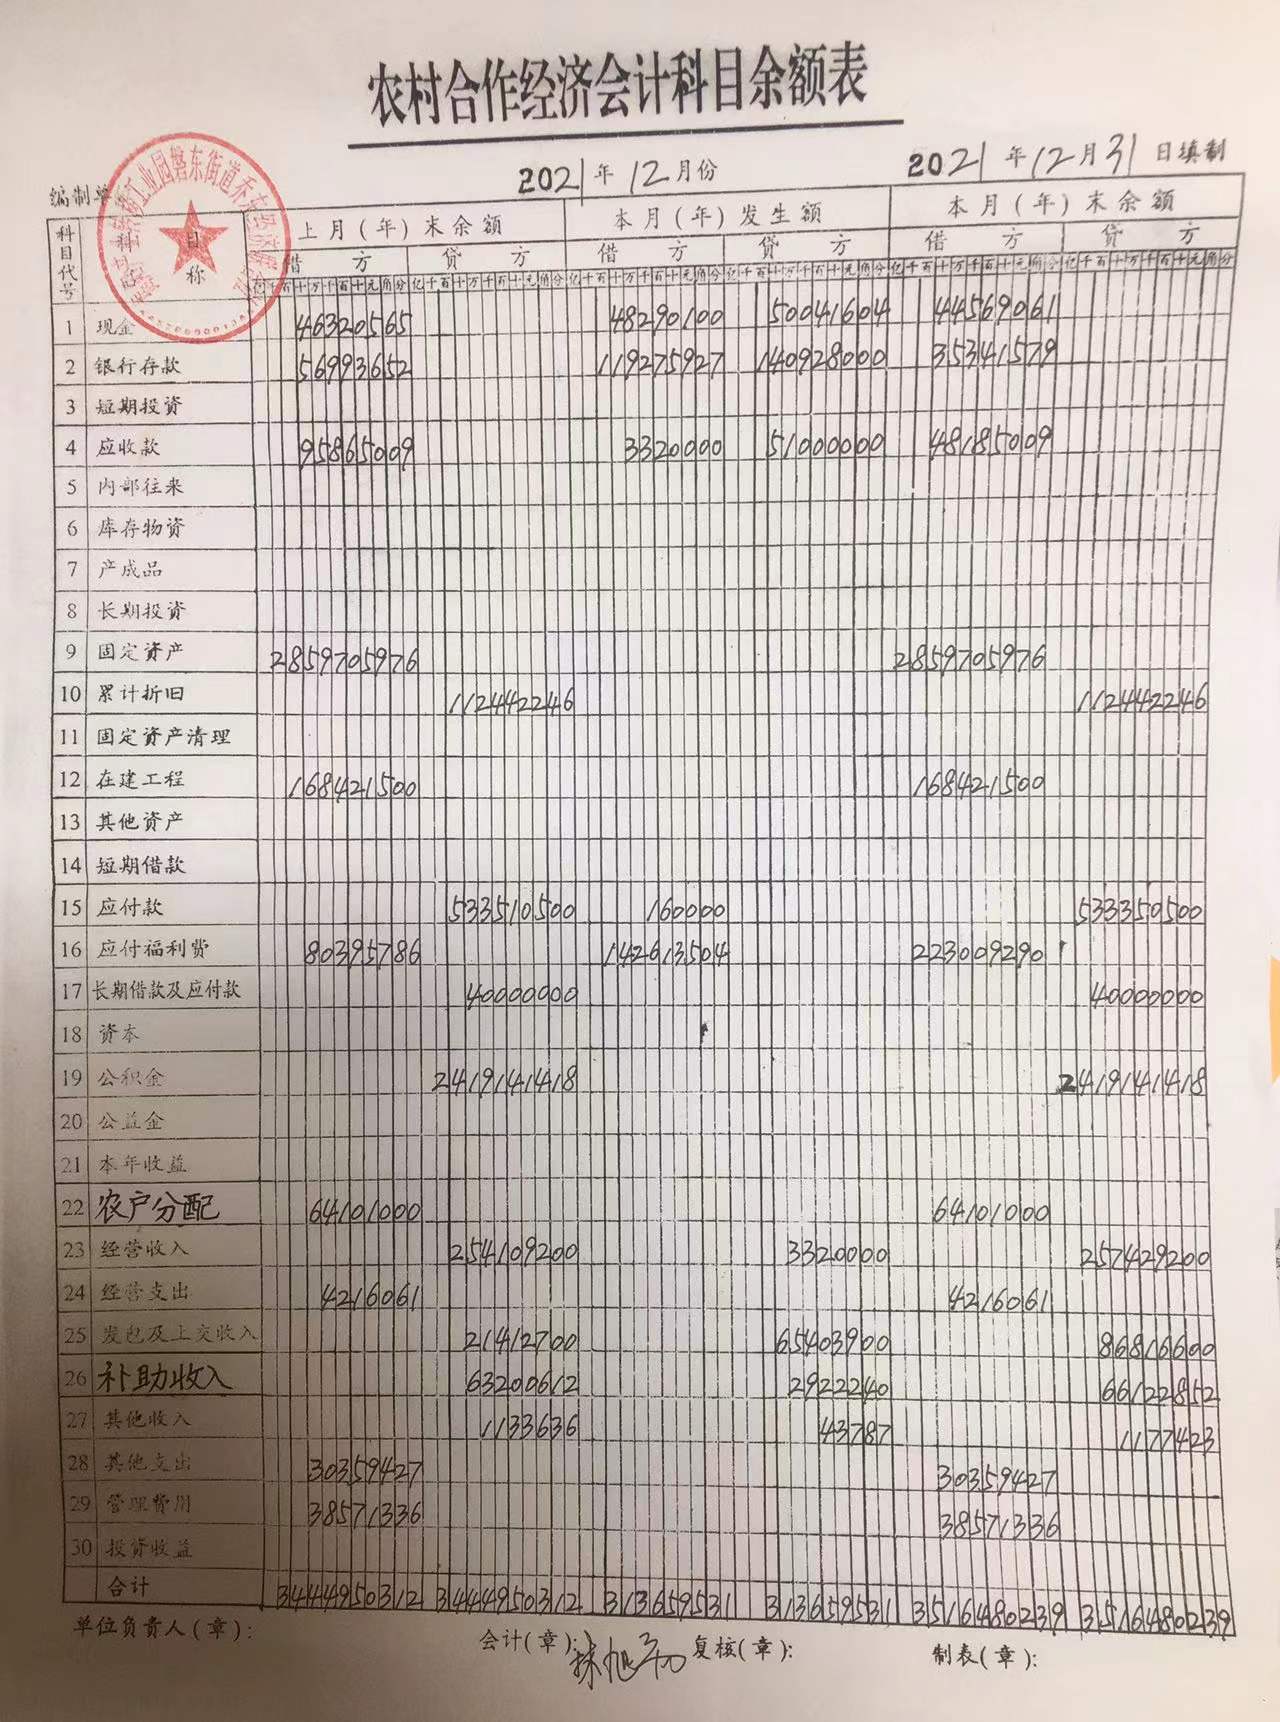 农村合作经济会计科目余额表
2021年12月份 2021年12月31日填制
编制单
科目代号 科目名称 上月(年)末余额 本月(年)发生额 本月(年)末余额
借方 贷方 借方 贷方 借方 贷方
亿千百十万千百十元角分 亿千百十万千百十元角分 亿千百十万千百十元角分 亿千百十万千百十元角分 亿千百十万千百十元角分 亿千百十万千百十元角分
1 现金 46320565 48290100 50041604 44569061
2 银行存款 56993652 119275927 140928000 35341579
3 短期投资
4 应收款 95865009 3320000 51000000 48185009
5 内部往来
6 库存物资
7 产成品
8 长期投资
9 固定资产 2859705976 2859705976
10 累计折旧 112442246 112442246
11 固定资产清理
12 在建工程 168421500 168421500
13 其他资产
14 短期借款
15 应付款 533510500 160000 533350500
16 应付福利费 80395786 142613504 223009290
17 长期借款及应付款 40000000 40000000
18 资本
19 公积金 2419141418 2419141418
20 公益金
21 本年收益
22 农户分配 64101000 64101000
23 经营收入 254109200 3320000 257429200
24 经营支出 4216061 4216061
25 发包及上交收入 21412700 65403900 86816600
26 补助收入 63200612 2922240 66122852
27 其他收入 1133636 43787 1177423
28 其他支出 30359427 30359427
29 管理费用 38571336 38571336
30 投资收益
合计 3444950312 3444950312 313659531 313659531 3516480239 3516480239
单位负责人(章): 会计(章): 复核(章): 制表(章):